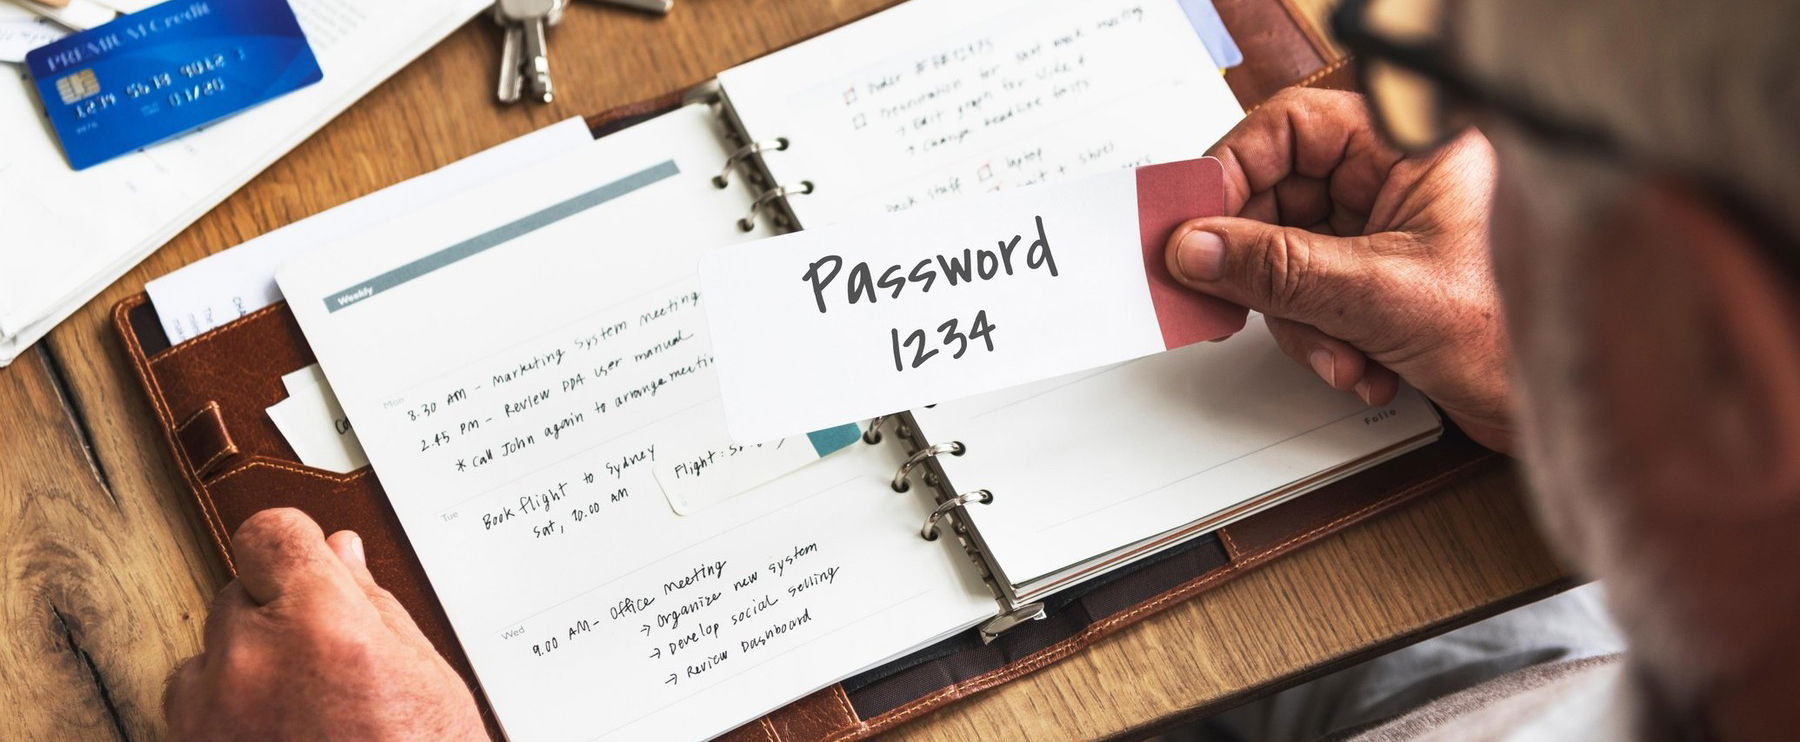 PREMIUM Credit
1234 5678 9012
01/20
Weekly
Mon
8.30 AM - Marketing System Meeting
2.45 PM - Review PDA user manual
* Call John again to arrange meetin
Tue
Book flight to Sydney
Sat, 10.00 AM
Flight :
Wed
9.00 AM - Office Meeting
→ Organize new system
→ Develop social selling
→ Review Dashboard
Order
Presentation for next week
→ Edit graph for slide
→ Change headline
Pack stuff
laptop
Password
1234
Folio